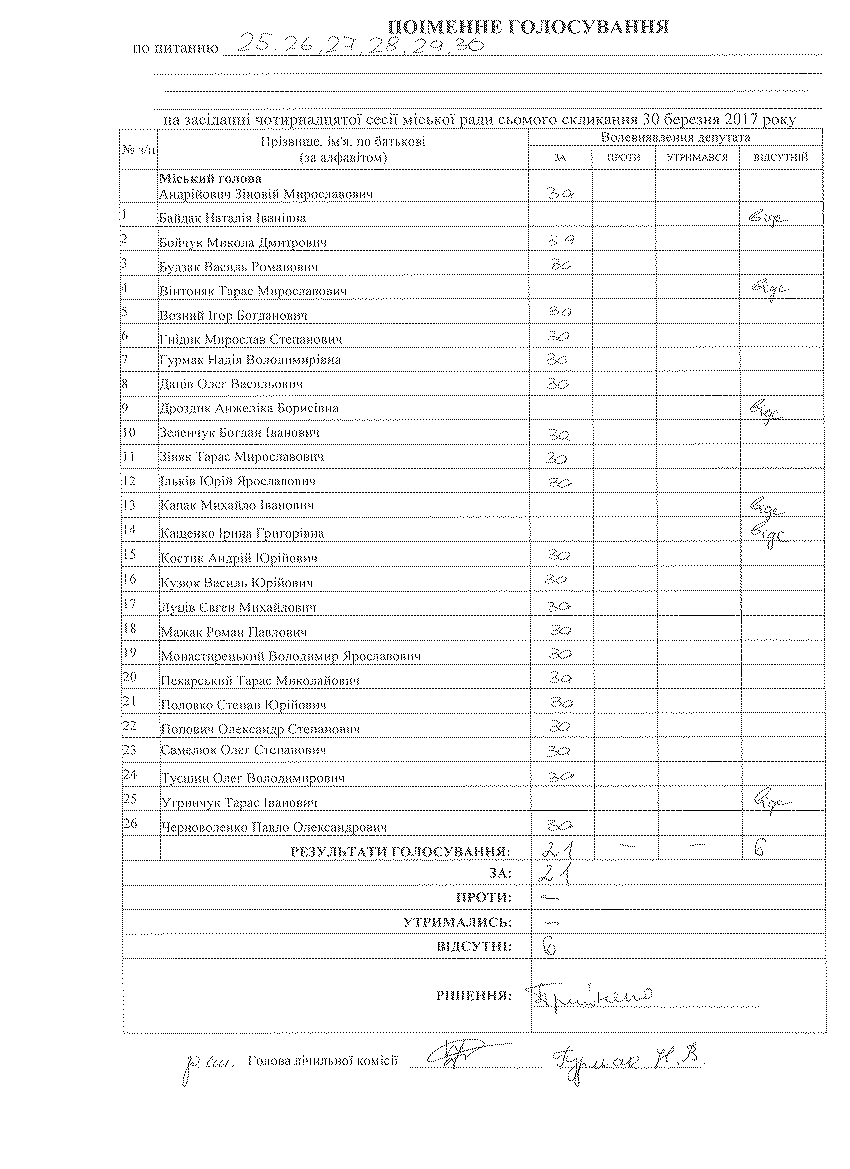 ПОІМЕННЕ ГОЛОСУВАННЯ
по питанню 25.26,27,28,29,30
на засіданні чотирнадцятої сесії міської ради сьомого скликання 30 березня 2017 року
№ з/п Прізвище, ім'я, по батькові Волевиявлення депутата
(за алфавітом) ЗА ПРОТИ УТРИМАВСЯ ВІДСУТНІЙ
Міський голова
Андрійович Зіновій Мирославович 30
1 Байдак Наталія Іванівна відс
2 Бойчук Микола Дмитрович
3 Будзак Василь Романович 30
4 Вінтоняк Тарас Мирославович відс
5 Возний Ігор Богданович 30
6 Гнідик Мирослав Степанович 30
7 Гурмак Надія Володимирівна 30
8 Даців Олег Васильович 30
9 Дроздик Анжеліка Борисівна відс
10 Зеленчук Богдан Іванович 30
11 Зіняк Тарас Мирославович 30
12 Ільків Юрій Ярославович 30
13 Капак Михайло Іванович відс
14 Кащенко Ірина Григорівна відс
15 Костик Андрій Юрійович 30
16 Кузюк Василь Юрійович 30
17 Луців Євген Михайлович 30
18 Мажак Роман Павлович 30
19 Монастирецький Володимир Ярославович 30
20 Пекарський Тарас Миколайович 30
21 Половко Степан Юрійович 30
22 Попович Олександр Степанович 30
23 Самелюк Олег Степанович 30
24 Тусшин Олег Володимирович 30
25 Угринчук Тарас Іванович відс
26 Черноволенко Павло Олександрович 30
РЕЗУЛЬТАТИ ГОЛОСУВАННЯ: 21 – – 6
ЗА: 21
ПРОТИ: –
УТРИМАЛИСЬ: –
ВІДСУТНІ: 6
РІШЕННЯ: Прийнено
Голова лічильної комісії Гурмак Н.В.